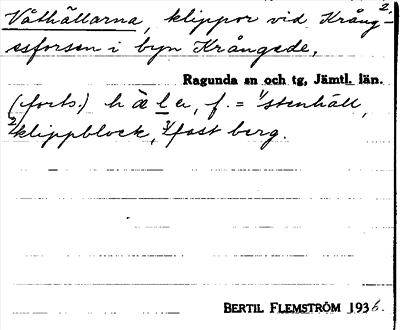 Våthällarna, klippor vid Krång- 2,
esforsen i byn Krångede,
Ragunda sn och tg, Jämtl. län.
(forts.) hälla, f. = 1/stenhäll,
2/klippblock, 3/fast berg.
BERTIL FLEMSTRÖM 1936.